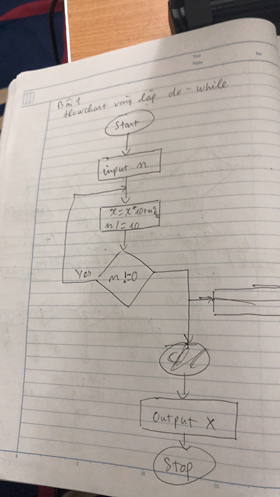 Bài 1
flowchart vòng lặp do-while
Start
input n
x = x*10+n%
n/=10
Yes
n!=0
Output X
Stop